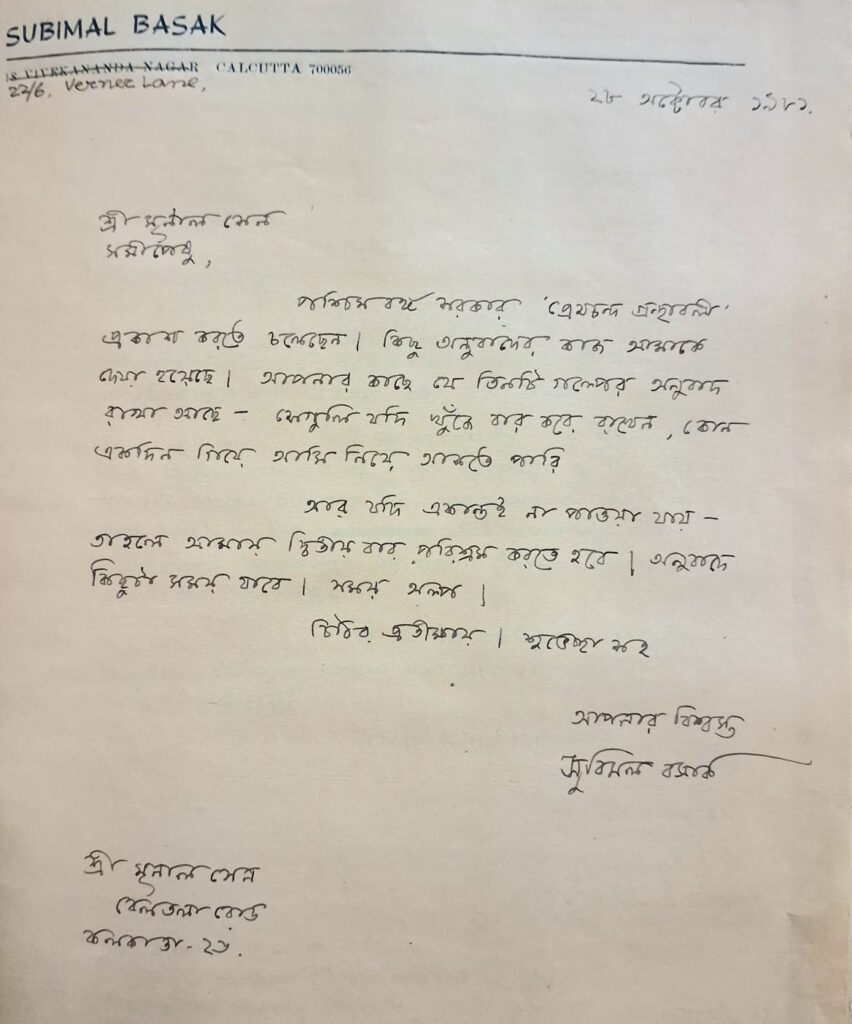 SUBIMAL BASAK
18 VIVEKANANDA NAGAR CALCUTTA 700056
22/6, Verner Lane,
২৮ অক্টোবর ১৯৮২.
শ্রী মৃণাল সেন
সমীপেষু,
পশ্চিমবঙ্গ সরকার 'প্রেমচন্দ গ্রন্থাবলী'
প্রকাশ করতে চলেছেন। কিছু অনুবাদের কাজ আমাকে
দেয়া হয়েছে। আপনার কাছে যে তিনটি গল্পের অনুবাদ
রাখা আছে – সেগুলি যদি খুঁজে বার করে রাখেন, কোন
একদিন গিয়ে আমি নিয়ে আসতে পারি
আর যদি একান্তই না পাওয়া যায় –
তাহলে আমায় দ্বিতীয় বার পরিশ্রম করতে হবে। অনুবাদে
কিছুটা সময় যাবে। সময় অল্প।
চিঠির প্রতীক্ষায়। শুভেচ্ছা সহ
আপনার বিশ্বস্ত
সুবিমল বসাক
শ্রী মৃণাল সেন
বেলতলা রোড
কলকাতা - ২৬.